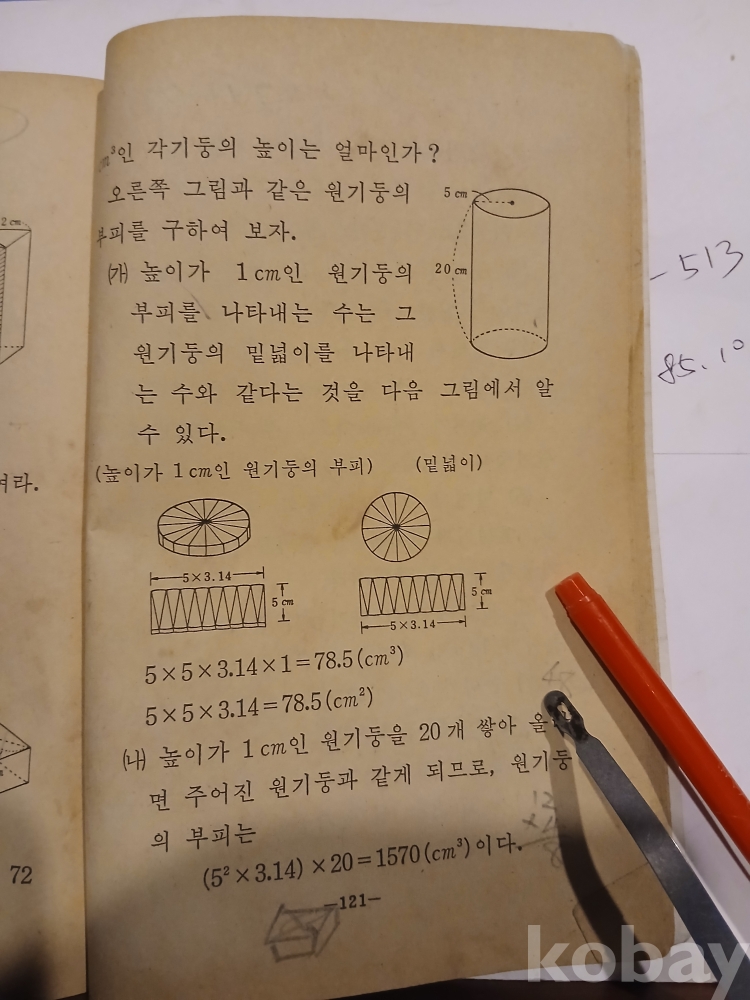 2 cm
여라.
72
cm³인 각기둥의 높이는 얼마인가?
오른쪽 그림과 같은 원기둥의
부피를 구하여 보자.
5 cm
20 cm
㈎ 높이가 1 cm인 원기둥의
부피를 나타내는 수는 그
원기둥의 밑넓이를 나타내
는 수와 같다는 것을 다음 그림에서 알
수 있다.
(높이가 1 cm인 원기둥의 부피) (밑넓이)
5×3.14
5 cm
5 cm
5×3.14
5×5×3.14×1=78.5(cm³)
5×5×3.14=78.5(cm²)
㈏ 높이가 1 cm인 원기둥을 20 개 쌓아
면 주어진 원기둥과 같게 되므로, 원기둥
의 부피는
(5²×3.14)×20=1570(cm³)이다.
—121—
- 513
85.10
kobay